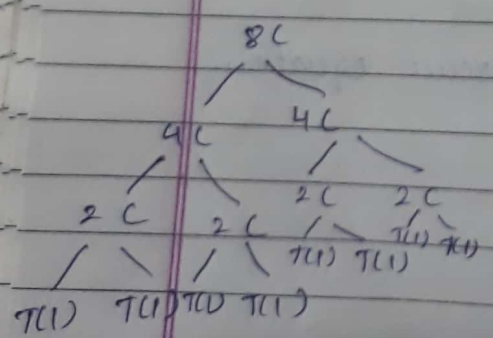 8C
4C 4C
2C 2C 2C 2C
T(1) T(1) T(1) T(1) T(1) T(1) T(1) T(1)